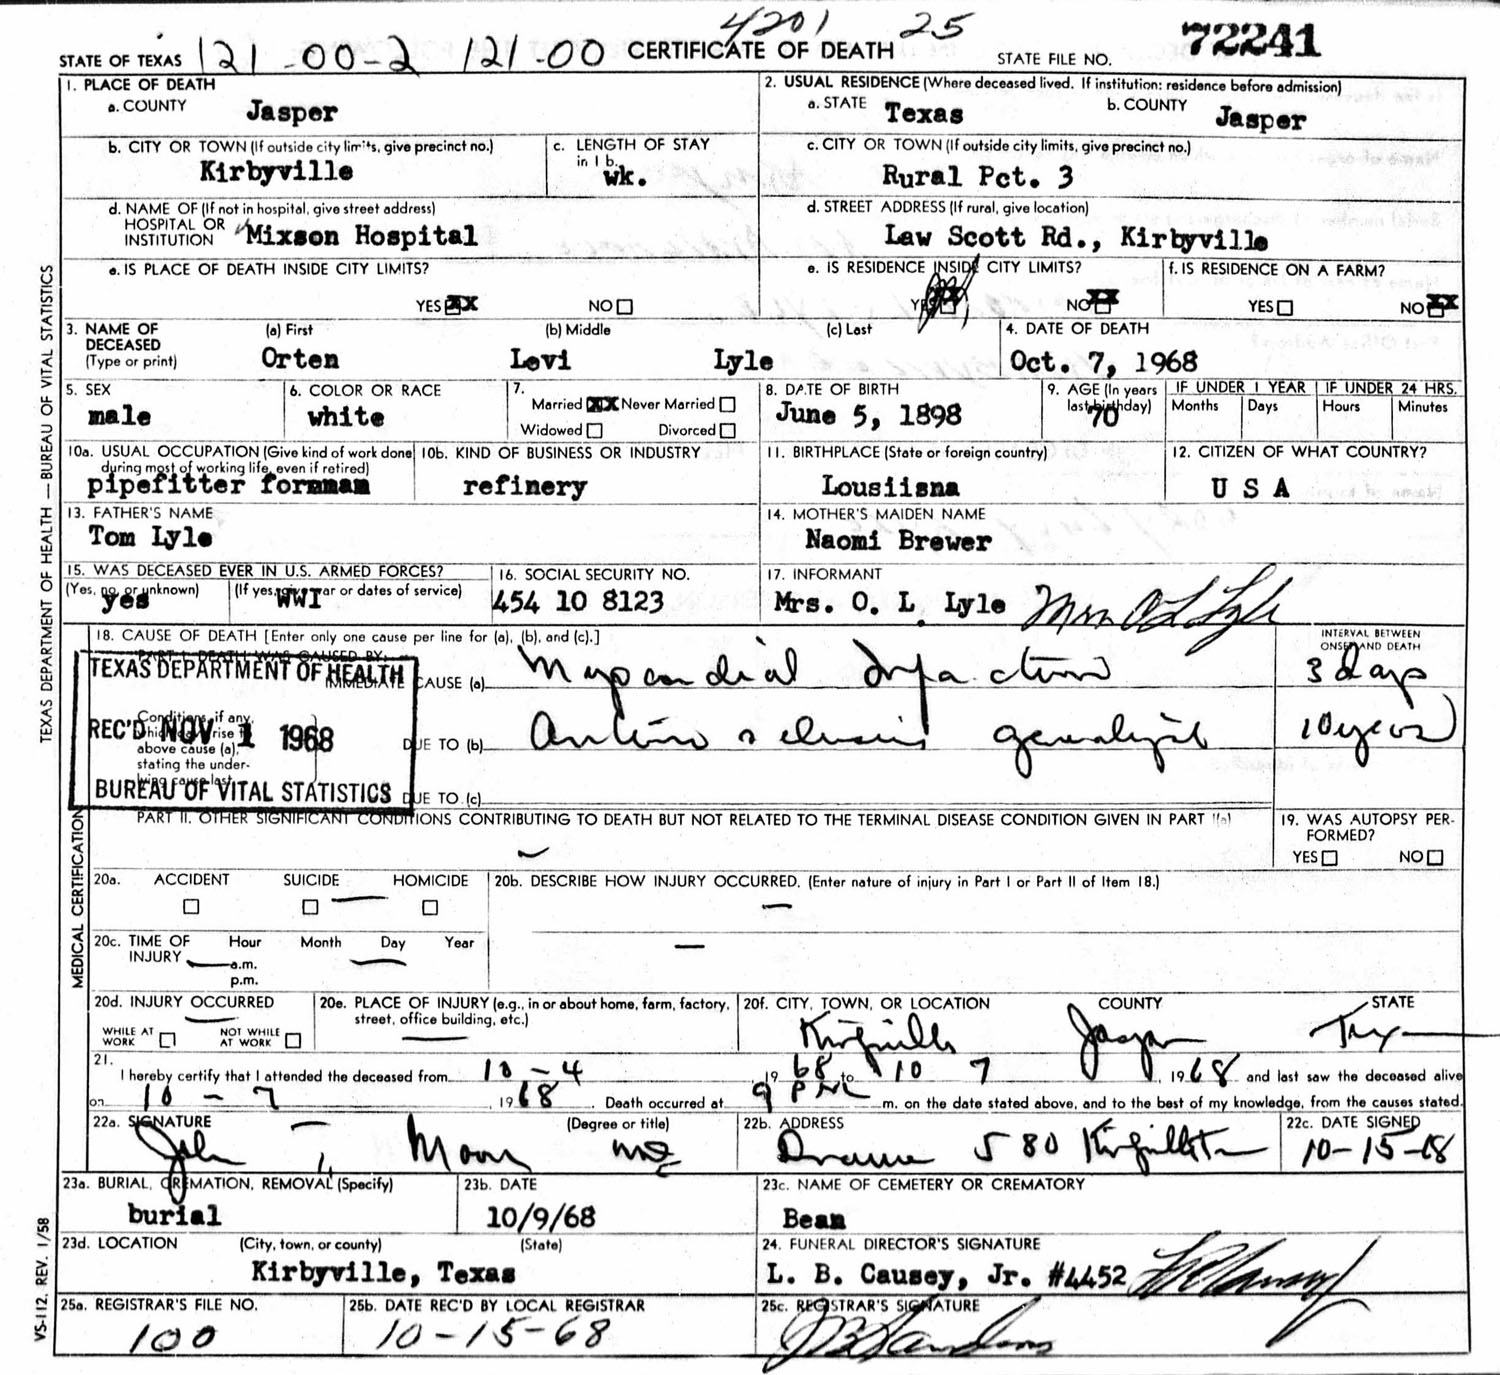 4201 25
STATE OF TEXAS 121-00-2 121-00 CERTIFICATE OF DEATH STATE FILE NO. 72241
1. PLACE OF DEATH
a. COUNTY Jasper
2. USUAL RESIDENCE (Where deceased lived. If institution: residence before admission)
a. STATE Texas b. COUNTY Jasper
b. CITY OR TOWN (If outside city limits, give precinct no.) Kirbyville
c. LENGTH OF STAY in 1 b. wk.
c. CITY OR TOWN (If outside city limits, give precinct no.) Rural Pct. 3
d. NAME OF (If not in hospital, give street address)
HOSPITAL OR
INSTITUTION Mixson Hospital
d. STREET ADDRESS (If rural, give location)
Law Scott Rd., Kirbyville
e. IS PLACE OF DEATH INSIDE CITY LIMITS?
YES XX NO
e. IS RESIDENCE INSIDE CITY LIMITS?
YES NO XX
f. IS RESIDENCE ON A FARM?
YES NO XX
3. NAME OF DECEASED (Type or print)
(a) First (b) Middle (c) Last
Orten Levi Lyle
4. DATE OF DEATH
Oct. 7, 1968
5. SEX
male
6. COLOR OR RACE
white
7. Married XX Never Married
Widowed Divorced
8. DATE OF BIRTH
June 5, 1898
9. AGE (In years last birthday)
70
IF UNDER 1 YEAR IF UNDER 24 HRS.
Months Days Hours Minutes
10a. USUAL OCCUPATION (Give kind of work done
during most of working life, even if retired)
pipefitter fornmam
10b. KIND OF BUSINESS OR INDUSTRY
refinery
11. BIRTHPLACE (State or foreign country)
Lousiisna
12. CITIZEN OF WHAT COUNTRY?
U S A
13. FATHER'S NAME
Tom Lyle
14. MOTHER'S MAIDEN NAME
Naomi Brewer
15. WAS DECEASED EVER IN U.S. ARMED FORCES?
(Yes, no, or unknown) (If yes, give war or dates of service)
yes WWI
16. SOCIAL SECURITY NO.
454 10 8123
17. INFORMANT
Mrs. O. L. Lyle Mrs O L Lyle
18. CAUSE OF DEATH [Enter only one cause per line for (a), (b), and (c).]
INTERVAL BETWEEN
ONSET AND DEATH
PART I. DEATH WAS CAUSED BY:
IMMEDIATE CAUSE (a) Myocardial Infarction 3 days
Conditions, if any,
which gave rise to
above cause (a),
stating the under-
lying cause last.
DUE TO (b) Arteriosclerosis generalized 10 years
DUE TO (c)
TEXAS DEPARTMENT OF HEALTH
REC'D NOV 1 1968
BUREAU OF VITAL STATISTICS
PART II. OTHER SIGNIFICANT CONDITIONS CONTRIBUTING TO DEATH BUT NOT RELATED TO THE TERMINAL DISEASE CONDITION GIVEN IN PART I(a)
19. WAS AUTOPSY PER-
FORMED?
YES NO
20a. ACCIDENT SUICIDE HOMICIDE
20b. DESCRIBE HOW INJURY OCCURRED. (Enter nature of injury in Part I or Part II of Item 18.)
20c. TIME OF INJURY Hour Month Day Year
a.m.
p.m.
20d. INJURY OCCURRED
WHILE AT WORK NOT WHILE AT WORK
20e. PLACE OF INJURY (e.g., in or about home, farm, factory,
street, office building, etc.)
20f. CITY, TOWN, OR LOCATION COUNTY STATE
Kirbyville Jasper Tex
21.
I hereby certify that I attended the deceased from 10-4 1968 to 10 7, 1968 and last saw the deceased alive
on 10-7, 1968. Death occurred at 9 PM m. on the date stated above, and to the best of my knowledge, from the causes stated.
22a. SIGNATURE (Degree or title)
John T. Moore MD
22b. ADDRESS
Drawer 580 Kirbyville Tx
22c. DATE SIGNED
10-15-68
23a. BURIAL, CREMATION, REMOVAL (Specify)
burial
23b. DATE
10/9/68
23c. NAME OF CEMETERY OR CREMATORY
Bean
23d. LOCATION (City, town, or county) (State)
Kirbyville, Texas
24. FUNERAL DIRECTOR'S SIGNATURE
L. B. Causey, Jr. #4452 L B Causey
25a. REGISTRAR'S FILE NO.
100
25b. DATE REC'D BY LOCAL REGISTRAR
10-15-68
25c. REGISTRAR'S SIGNATURE
TEXAS DEPARTMENT OF HEALTH — BUREAU OF VITAL STATISTICS
MEDICAL CERTIFICATION
VS-112, REV. 1/58